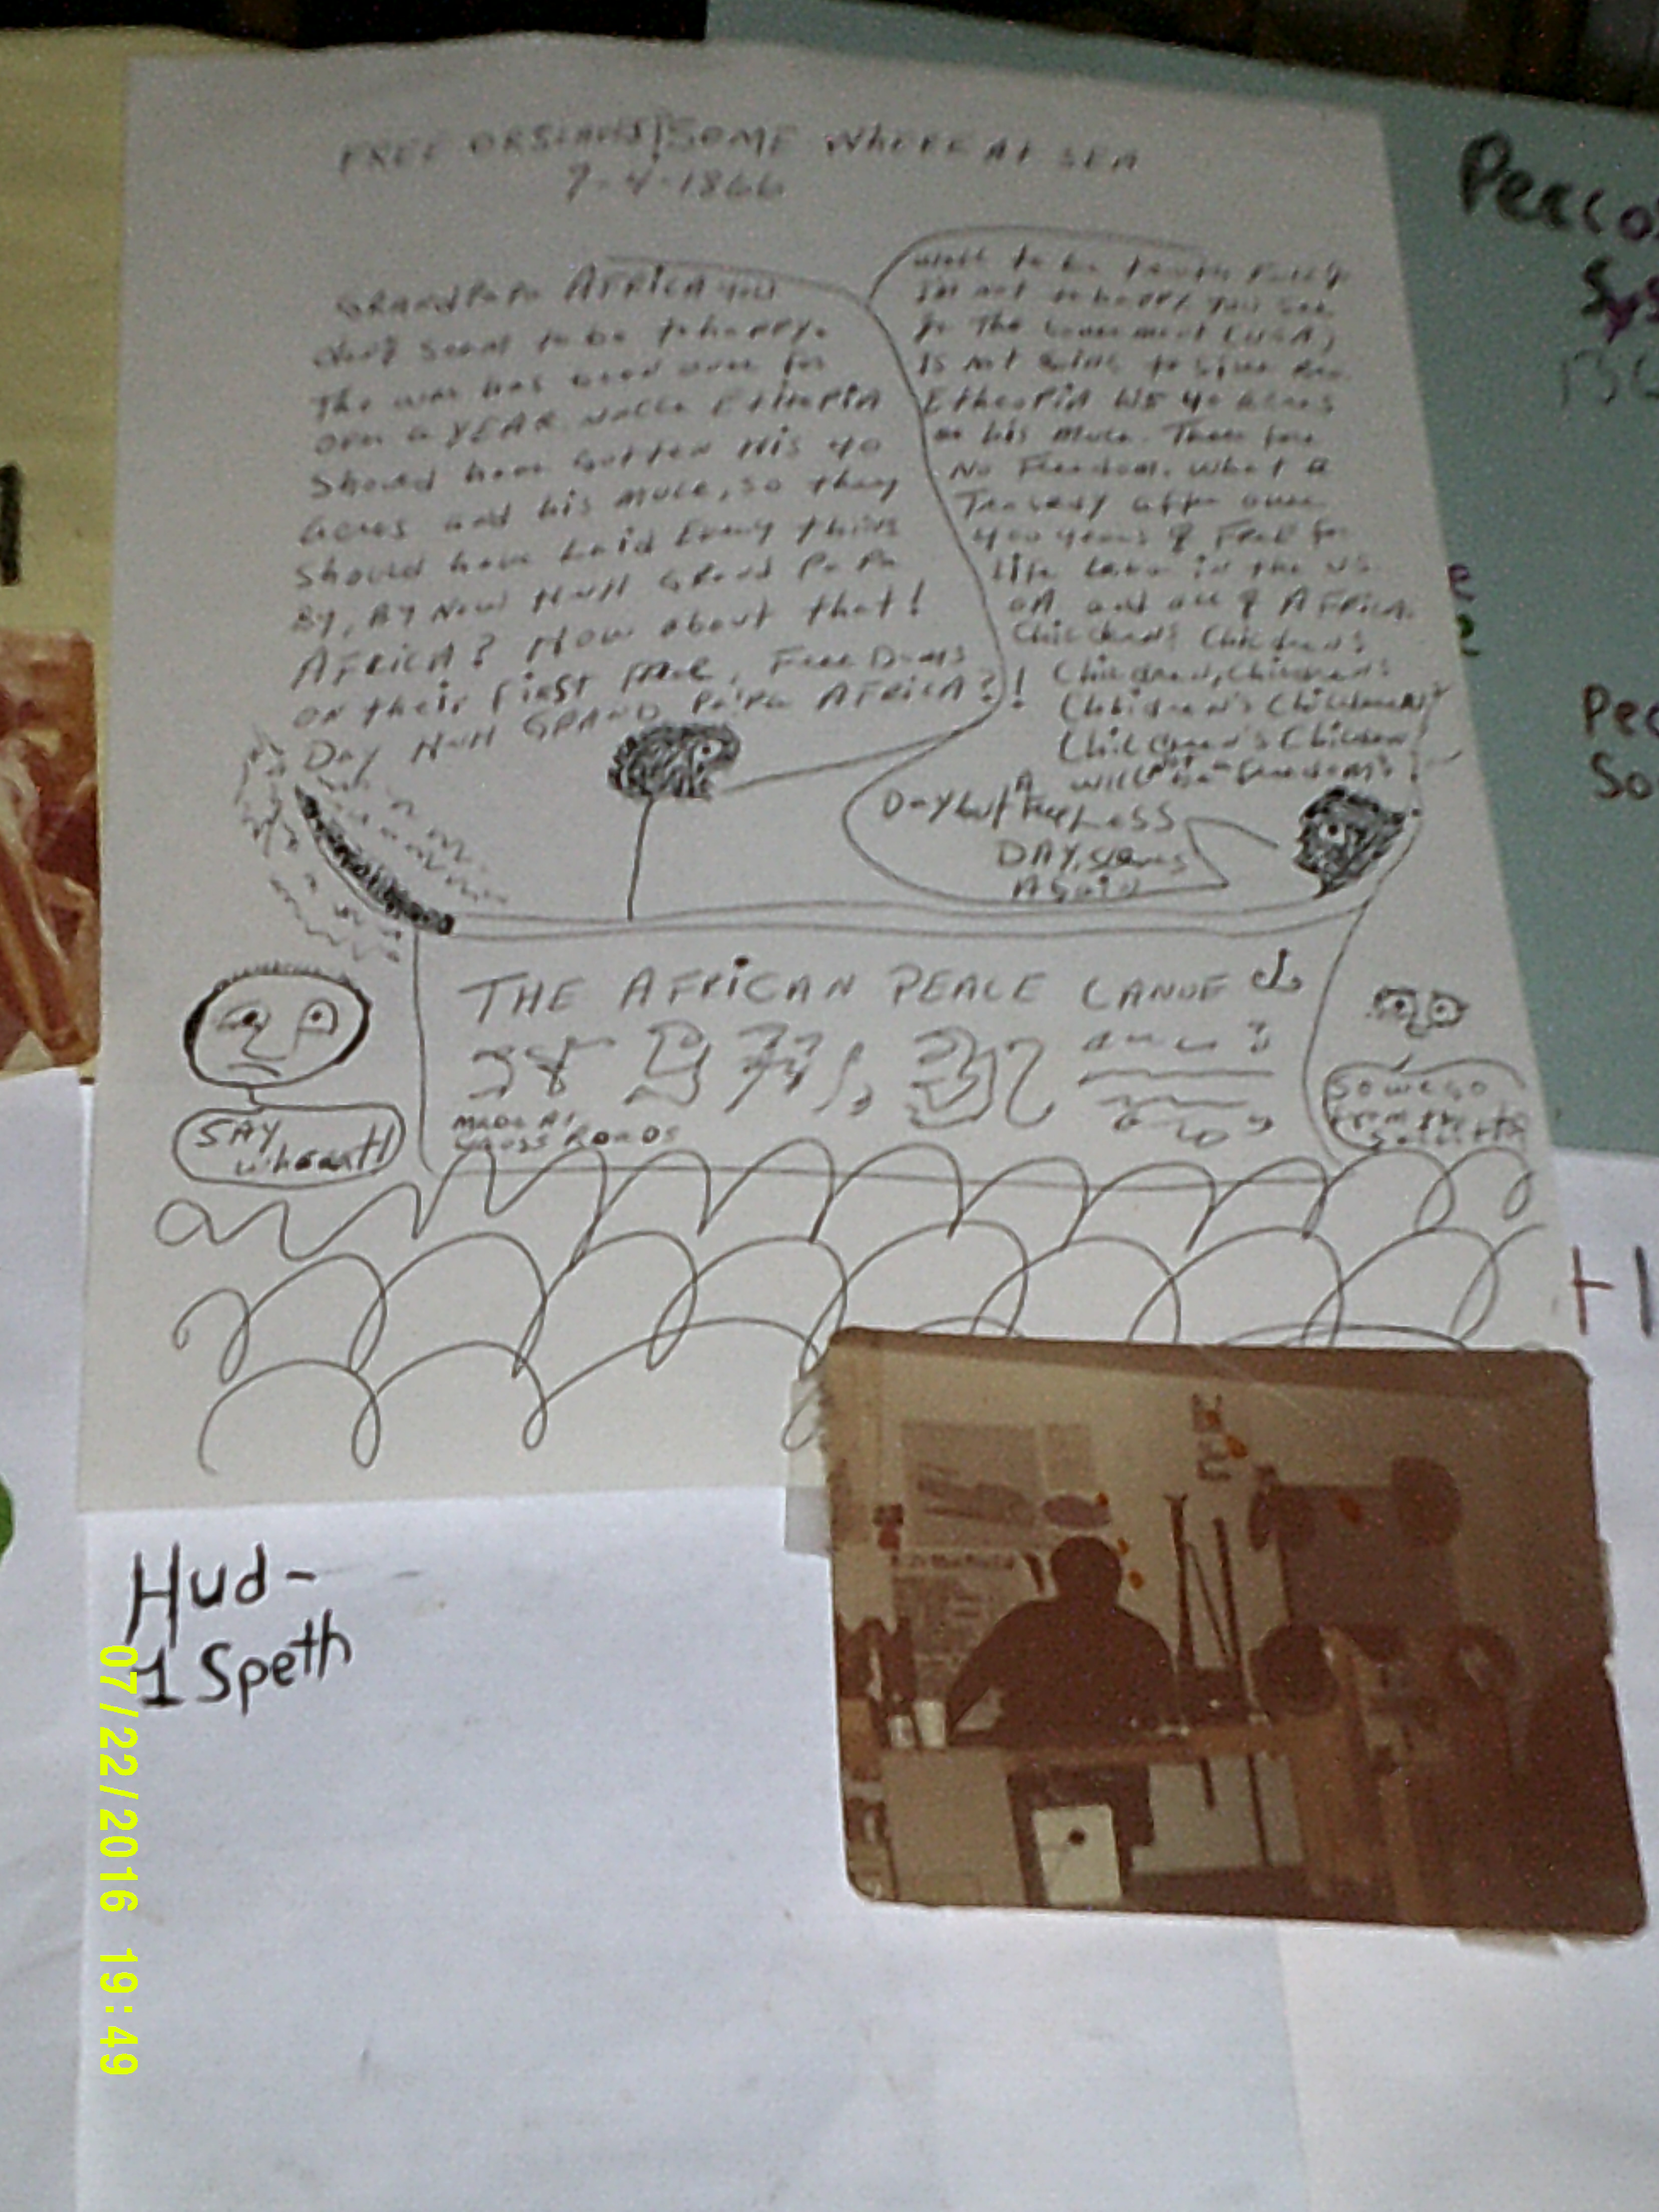 FREE OR SLAVES! SOME WHERE AT SEA
7-4-1866
GRANDPAPA AFRICA YOU
don't seem to be to happy.
The war has been over for
over a YEAR. ETHIOPIA
Should have gotten His 40
acres and his mule, so they
should have laid Every thing
By, By Now! HuH Grand PaPa
AFRICA? How about that!
on their First FREE
Day HuH GRAND PaPa AFRICA?!
well to be
I'm not to happy you see
The Government (USA)
IS Not going to give
ETHIOPIA 40 Acres
or his Mule. There fore
No Freedom. What a
Tragedy after over
400 years of Free for
Life Labor in the US
of A and all of AFRICA.
Children's Children's
Children, Children's
Children's Children's
Children's Children
will
Day but A
DAY, slaves
Again
THE AFRICAN PEACE CANOE
MADE AT
CROSS ROADS
SAY
whaaat!!
So we go
from the
Hud-
1 Speth
Perco
Sys
Pec
So
07/22/2016 19:49